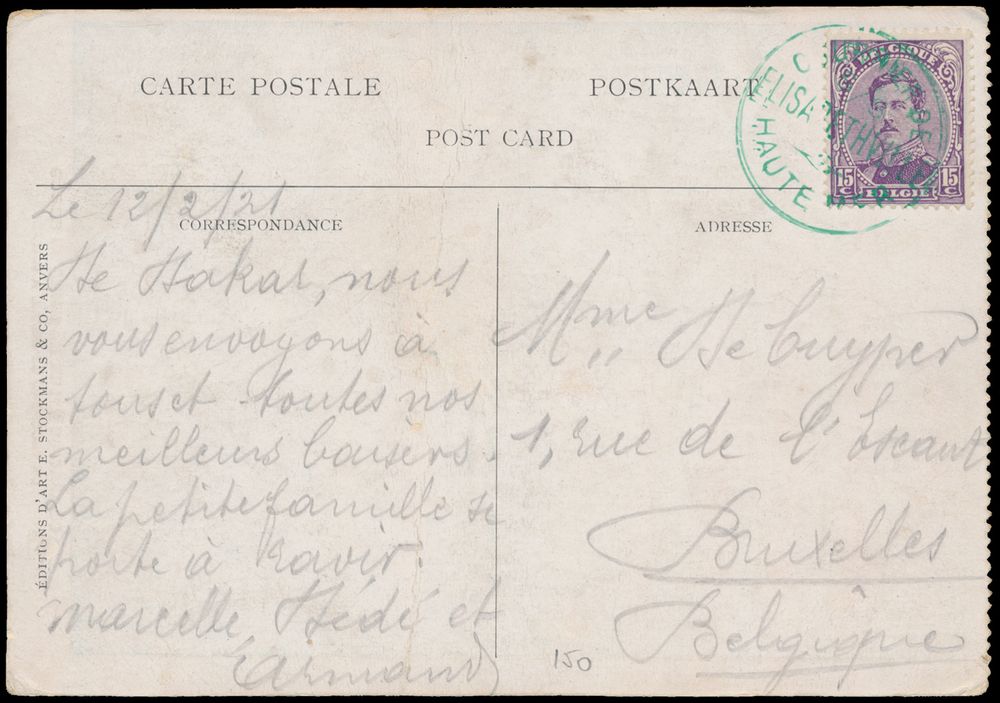 CARTE POSTALE
POSTKAART
POST CARD
ELISABETHVILLE
HAUTE MER
BELGIQUE
15 C 15 C
BELGIË
CORRESPONDANCE
ADRESSE
ÉDITIONS D'ART E. STOCKMANS & CO, ANVERS
Le 12/2/21
De Dakar, nous
vous envoyons à
tous et toutes nos
meilleurs baisers.
La petite famille se
porte à ravir.
Marcelle, Dédé et
Armand
Mme De Cuyper
1, rue de l'Escaut
Bruxelles
Belgique
150